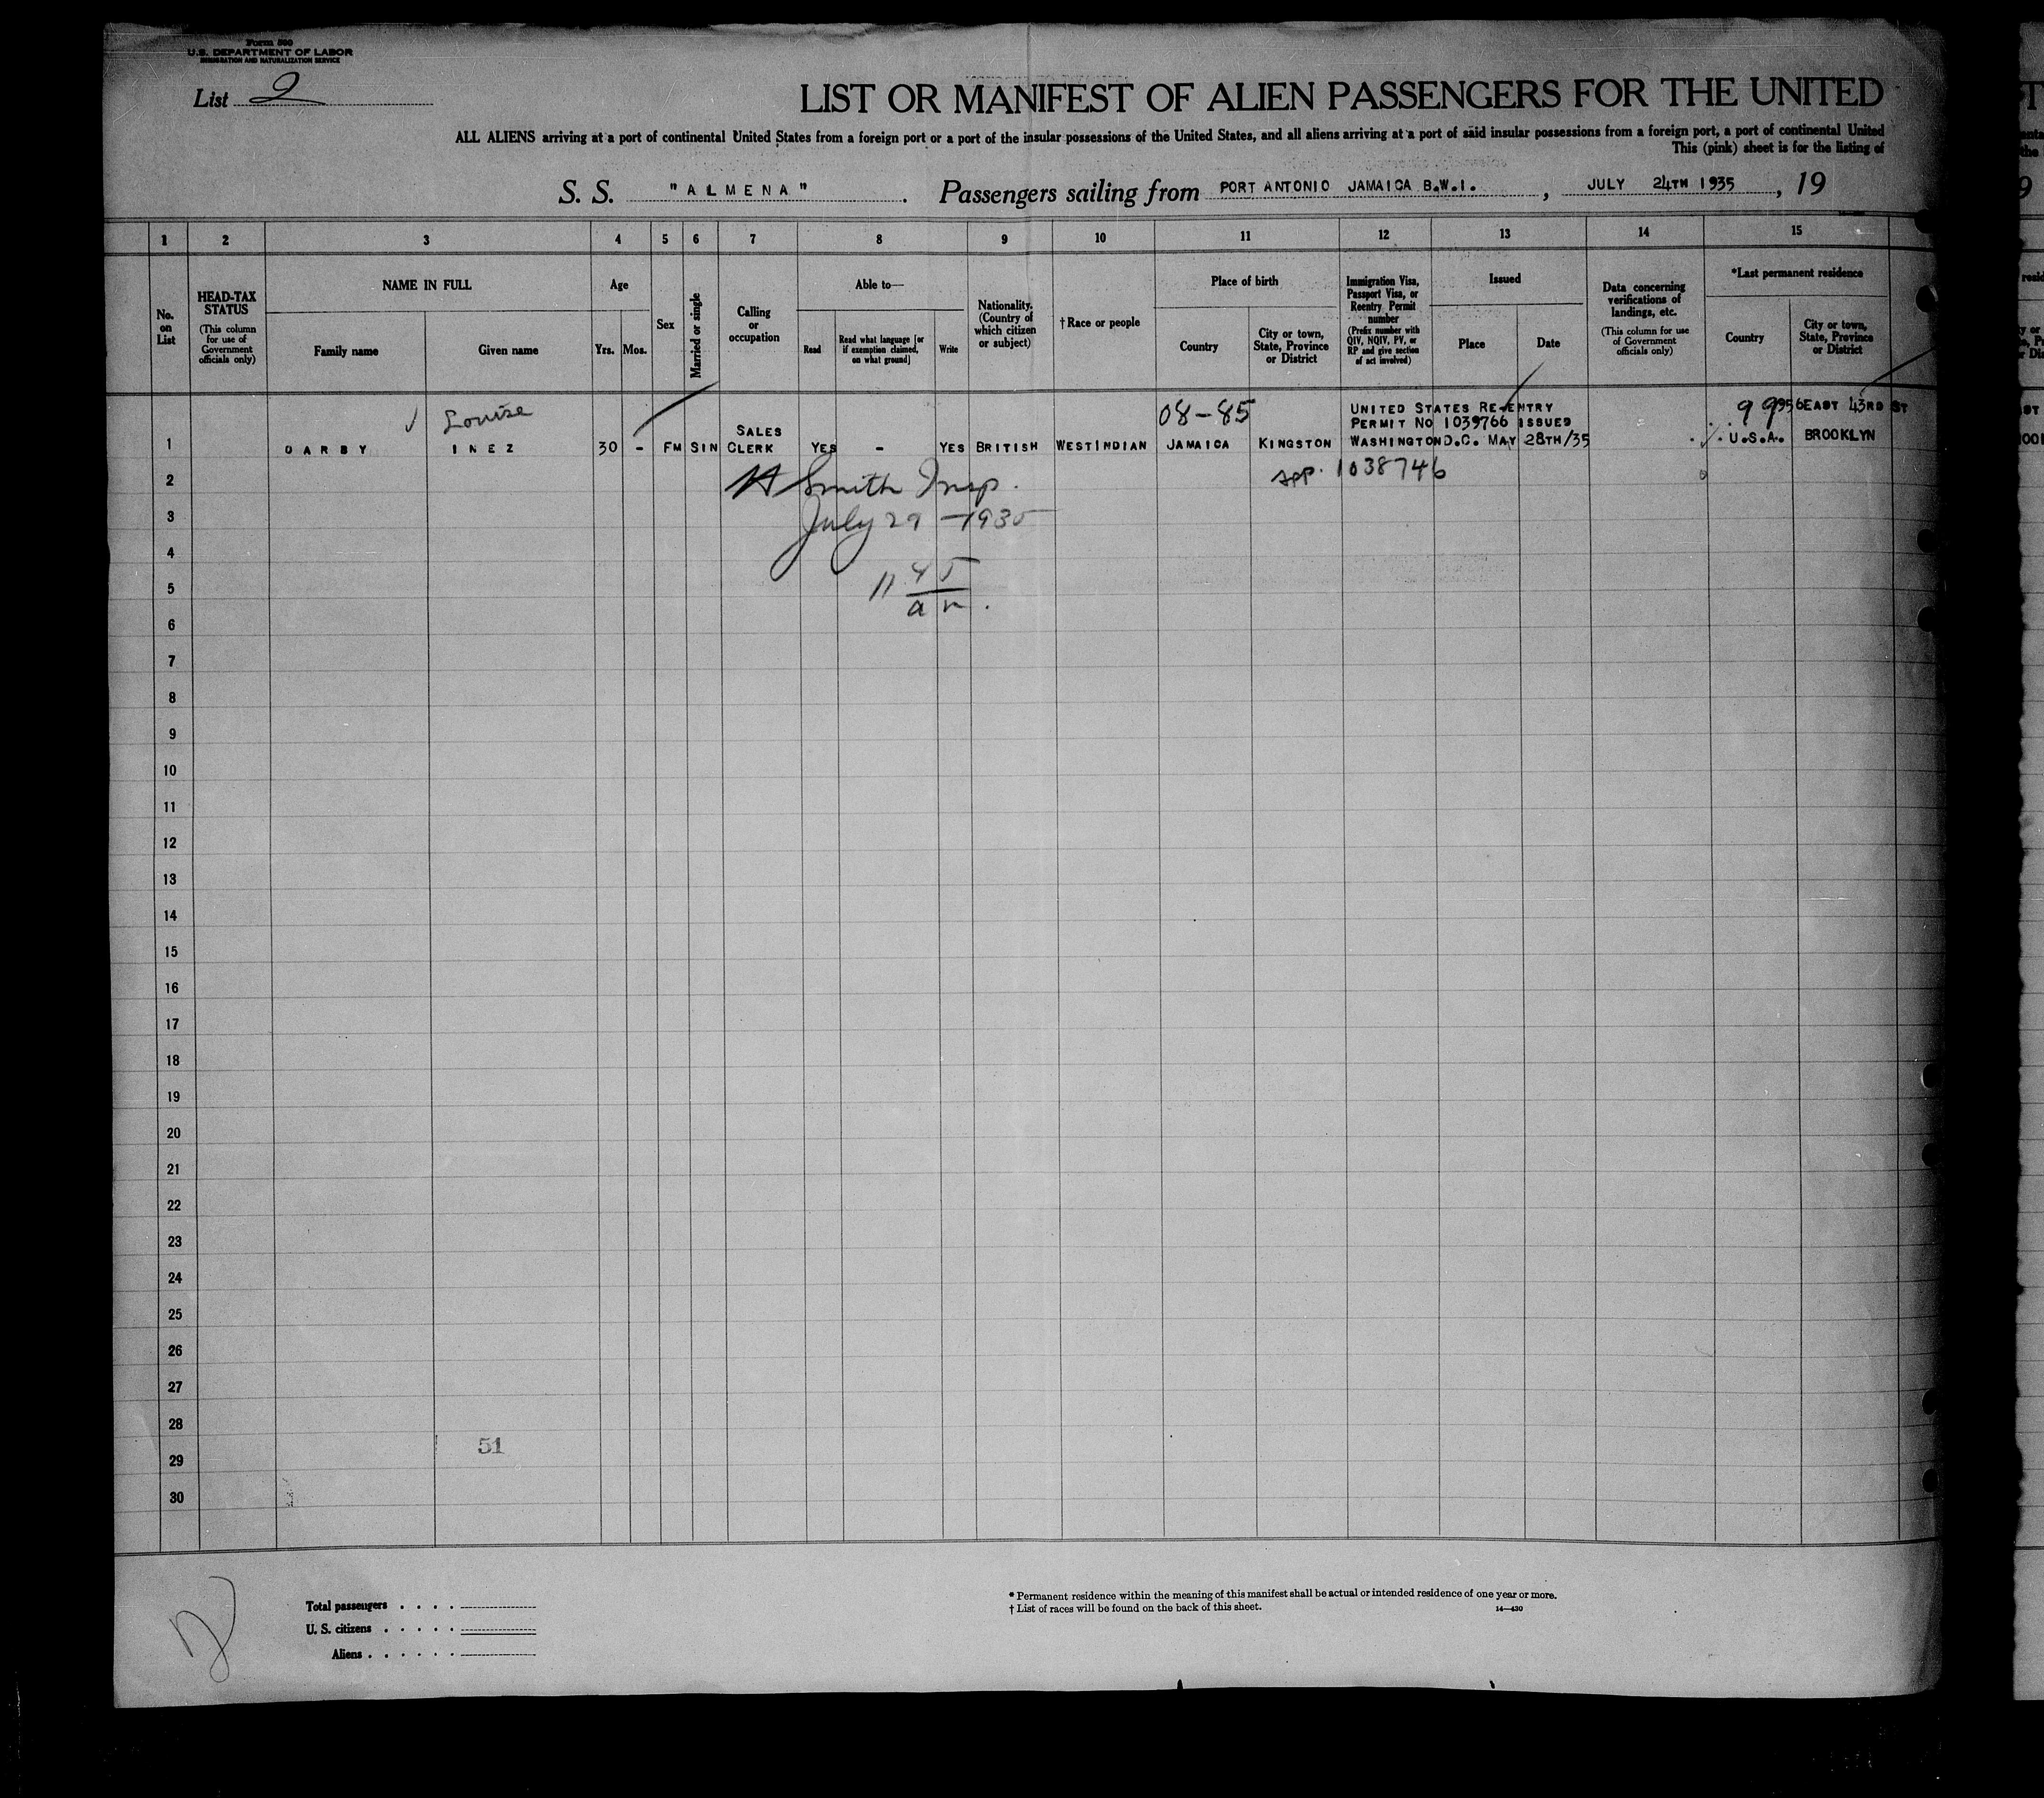 Form 500
U.S. DEPARTMENT OF LABOR
IMMIGRATION AND NATURALIZATION SERVICE
List 2
LIST OR MANIFEST OF ALIEN PASSENGERS FOR THE UNITED
ALL ALIENS arriving at a port of continental United States from a foreign port or a port of the insular possessions of the United States, and all aliens arriving at a port of said insular possessions from a foreign port, a port of continental United
This (pink) sheet is for the listing of
S. S. "ALMENA". Passengers sailing from PORT ANTONIO JAMAICA B.W.I., JULY 24TH 1935, 19
1 2 3 4 5 6 7 8 9 10 11 12 13 14 15
No. on List
HEAD-TAX STATUS
(This column for use of Government officials only)
NAME IN FULL
Family name
Given name
Age
Yrs.
Mos.
Sex
Married or single
Calling or occupation
Able to—
Read
Read what language [or if exemption claimed, on what ground]
Write
Nationality. (Country of which citizen or subject)
†Race or people
Place of birth
Country
City or town, State, Province or District
Immigration Visa, Passport Visa, or Reentry Permit number
(Prefix number with QIV, NQIV, PV, or RP and give section of act involved)
Issued
Place
Date
Data concerning verifications of landings, etc.
(This column for use of Government officials only)
*Last permanent residence
Country
City or town, State, Province or District
Louise
08-85
UNITED STATES RE-ENTRY
PERMIT NO 1039766 ISSUED
WASHINGTON D.C. MAY 28TH/35
956 EAST 43RD ST
1 DARBY INEZ 30 - FM SIN SALES CLERK YES - YES BRITISH WESTINDIAN JAMAICA KINGSTON
U.S.A. BROOKLYN
2
Smith Insp.
APP. 1038746
3
July 29 - 1935
4
5
11 45
am.
6
7
8
9
10
11
12
13
14
15
16
17
18
19
20
21
22
23
24
25
26
27
28
51
29
30
2
Total passengers
U. S. citizens
Aliens
* Permanent residence within the meaning of this manifest shall be actual or intended residence of one year or more.
† List of races will be found on the back of this sheet.
14—430